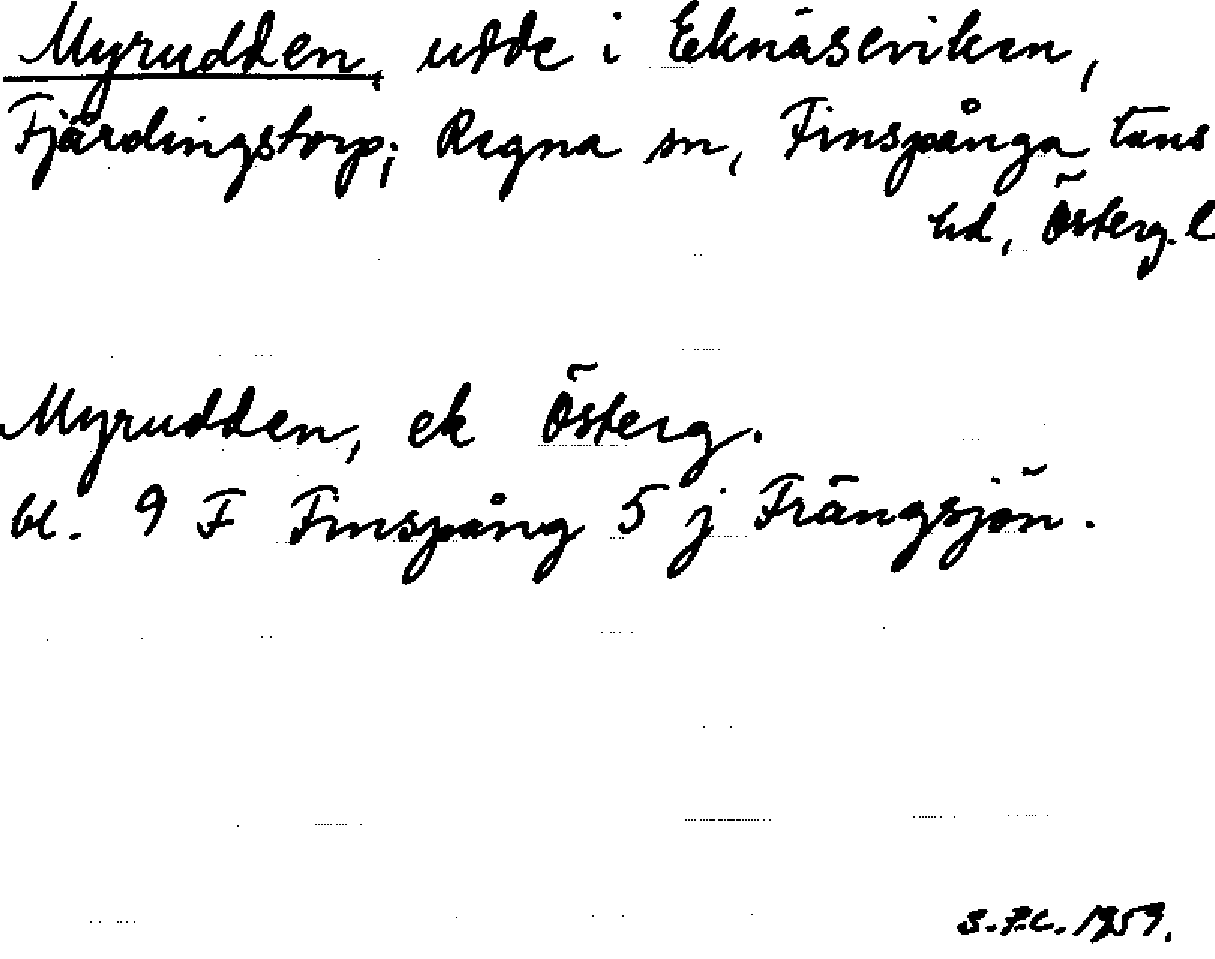 Myrudden, udde i Eknäseviken,
Fjärdingstorp; Regna sn, Finspånga läns
hd, Österg. l
Myrudden, ek Österg.
bl. 9 F Finspång 5 j Frängsjön.
S.F.C. 1959.